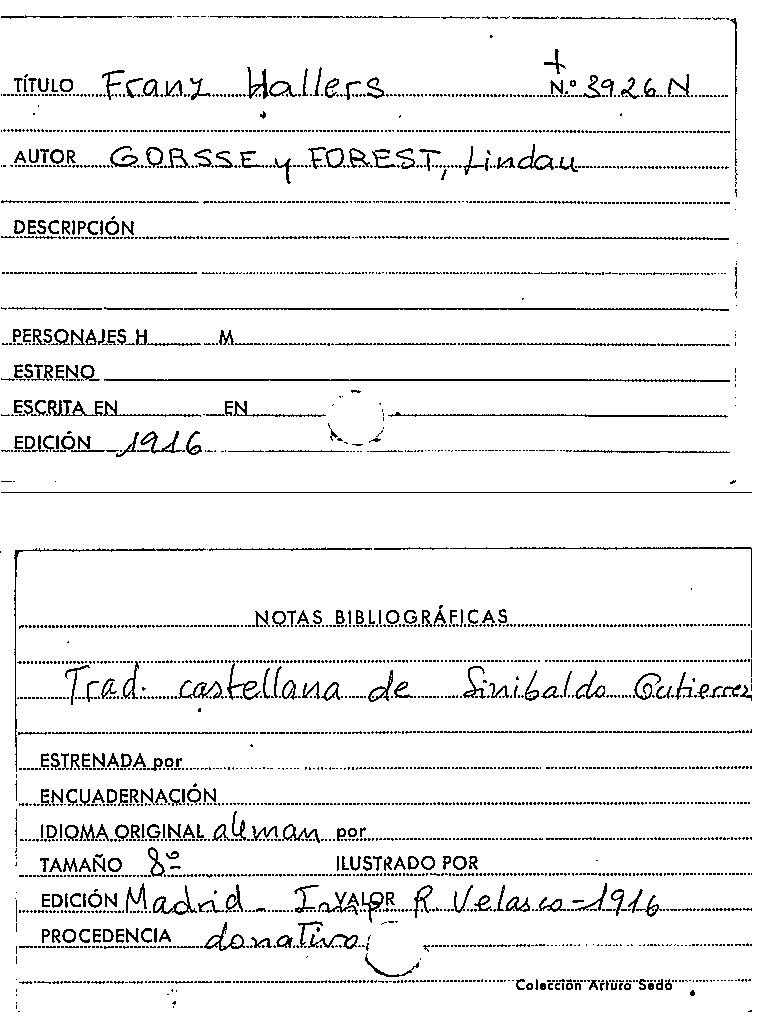 TÍTULO Franz Hallers N.º 3926 N
AUTOR GORSSE y FOREST, Lindau
DESCRIPCIÓN
PERSONAJES H M
ESTRENO
ESCRITA EN EN
EDICIÓN 1916
NOTAS BIBLIOGRÁFICAS
Trad. castellana de Sinibaldo Gutierrez
ESTRENADA por
ENCUADERNACIÓN
IDIOMA ORIGINAL aleman por
TAMAÑO 8º ILUSTRADO POR
EDICIÓN Madrid - Imp VALOR R. Velasco - 1916
PROCEDENCIA donativo
Colección Arturo Sedó